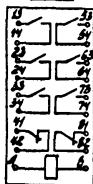 13 53
14 54
23 63
24 64
33 73
34 74
41 81
42 82
A Б